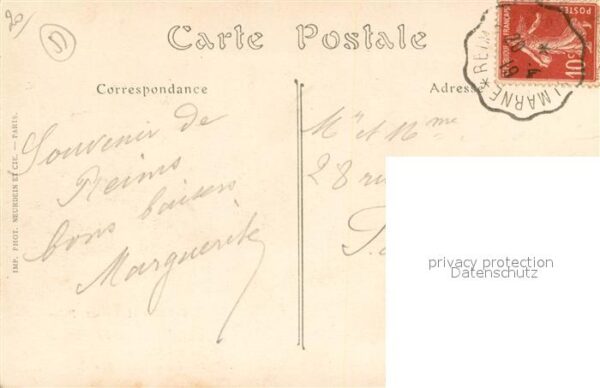 20/
J
Carte Postale
Correspondance
Adres
Souvenir de
Reims
bons baisers
Marguerite
Mr et Mme
28 ru
IMP. PHOT. NEURDEIN ET CIE. — PARIS.
REIM
MARNE *
POSTES
10c
privacy protection
Datenschutz